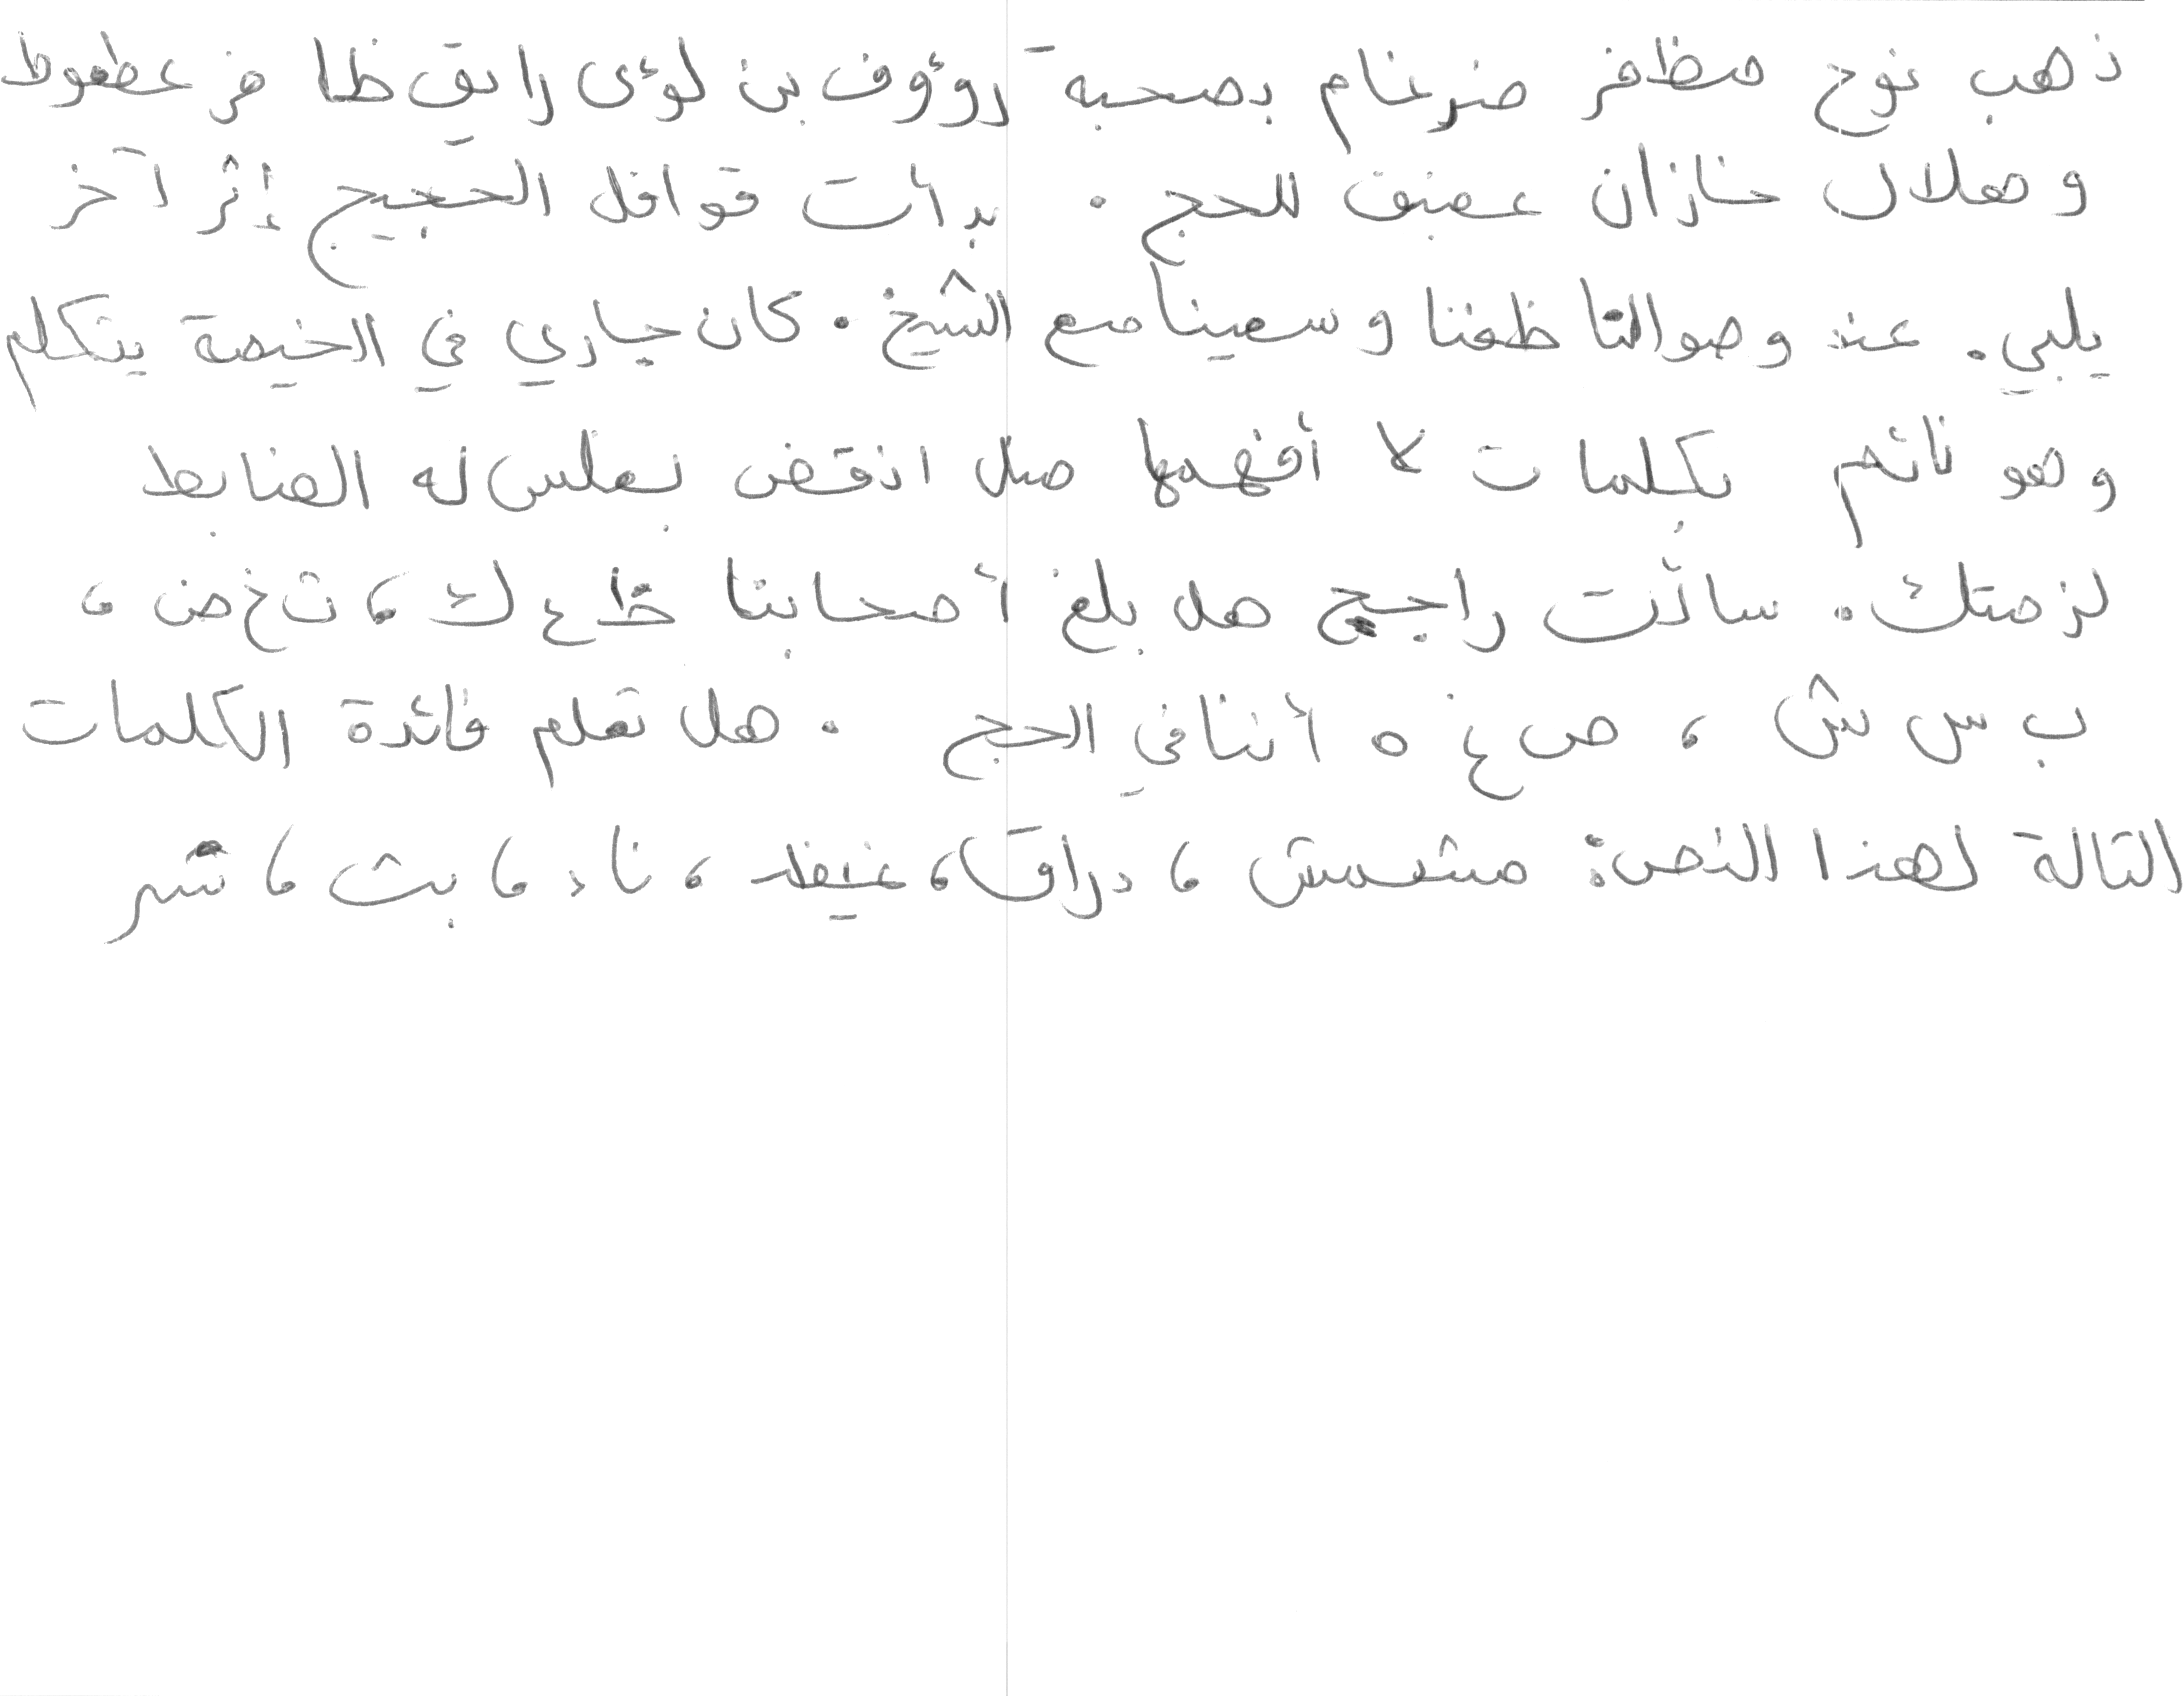 ذهب نوح مظفر ضرغام بصحبة رؤوف بن لؤى رايق ظافر عطعوط
وهلال خازان عفيف للحج . بدأت قوافل الحجيج إثر آخر
يلبي . عند وصولنا ظعنا وسعينا مع الشيخ . كان جاري في الخيمة يتكلم
وهو نائم بكلمات لا أفهمها مثل انقض بغلس له الضابط
لزمتك . سألت راجح هل بلغ أصحابنا خاع ك، ت خ ض ،
ب س ش ، ص غ ه أننا في الحج . هل تعلم فائدة الكلمات
التالة لهذا النص: مشمش ، دراق ، غيظ ، ناد ، بث ، شر